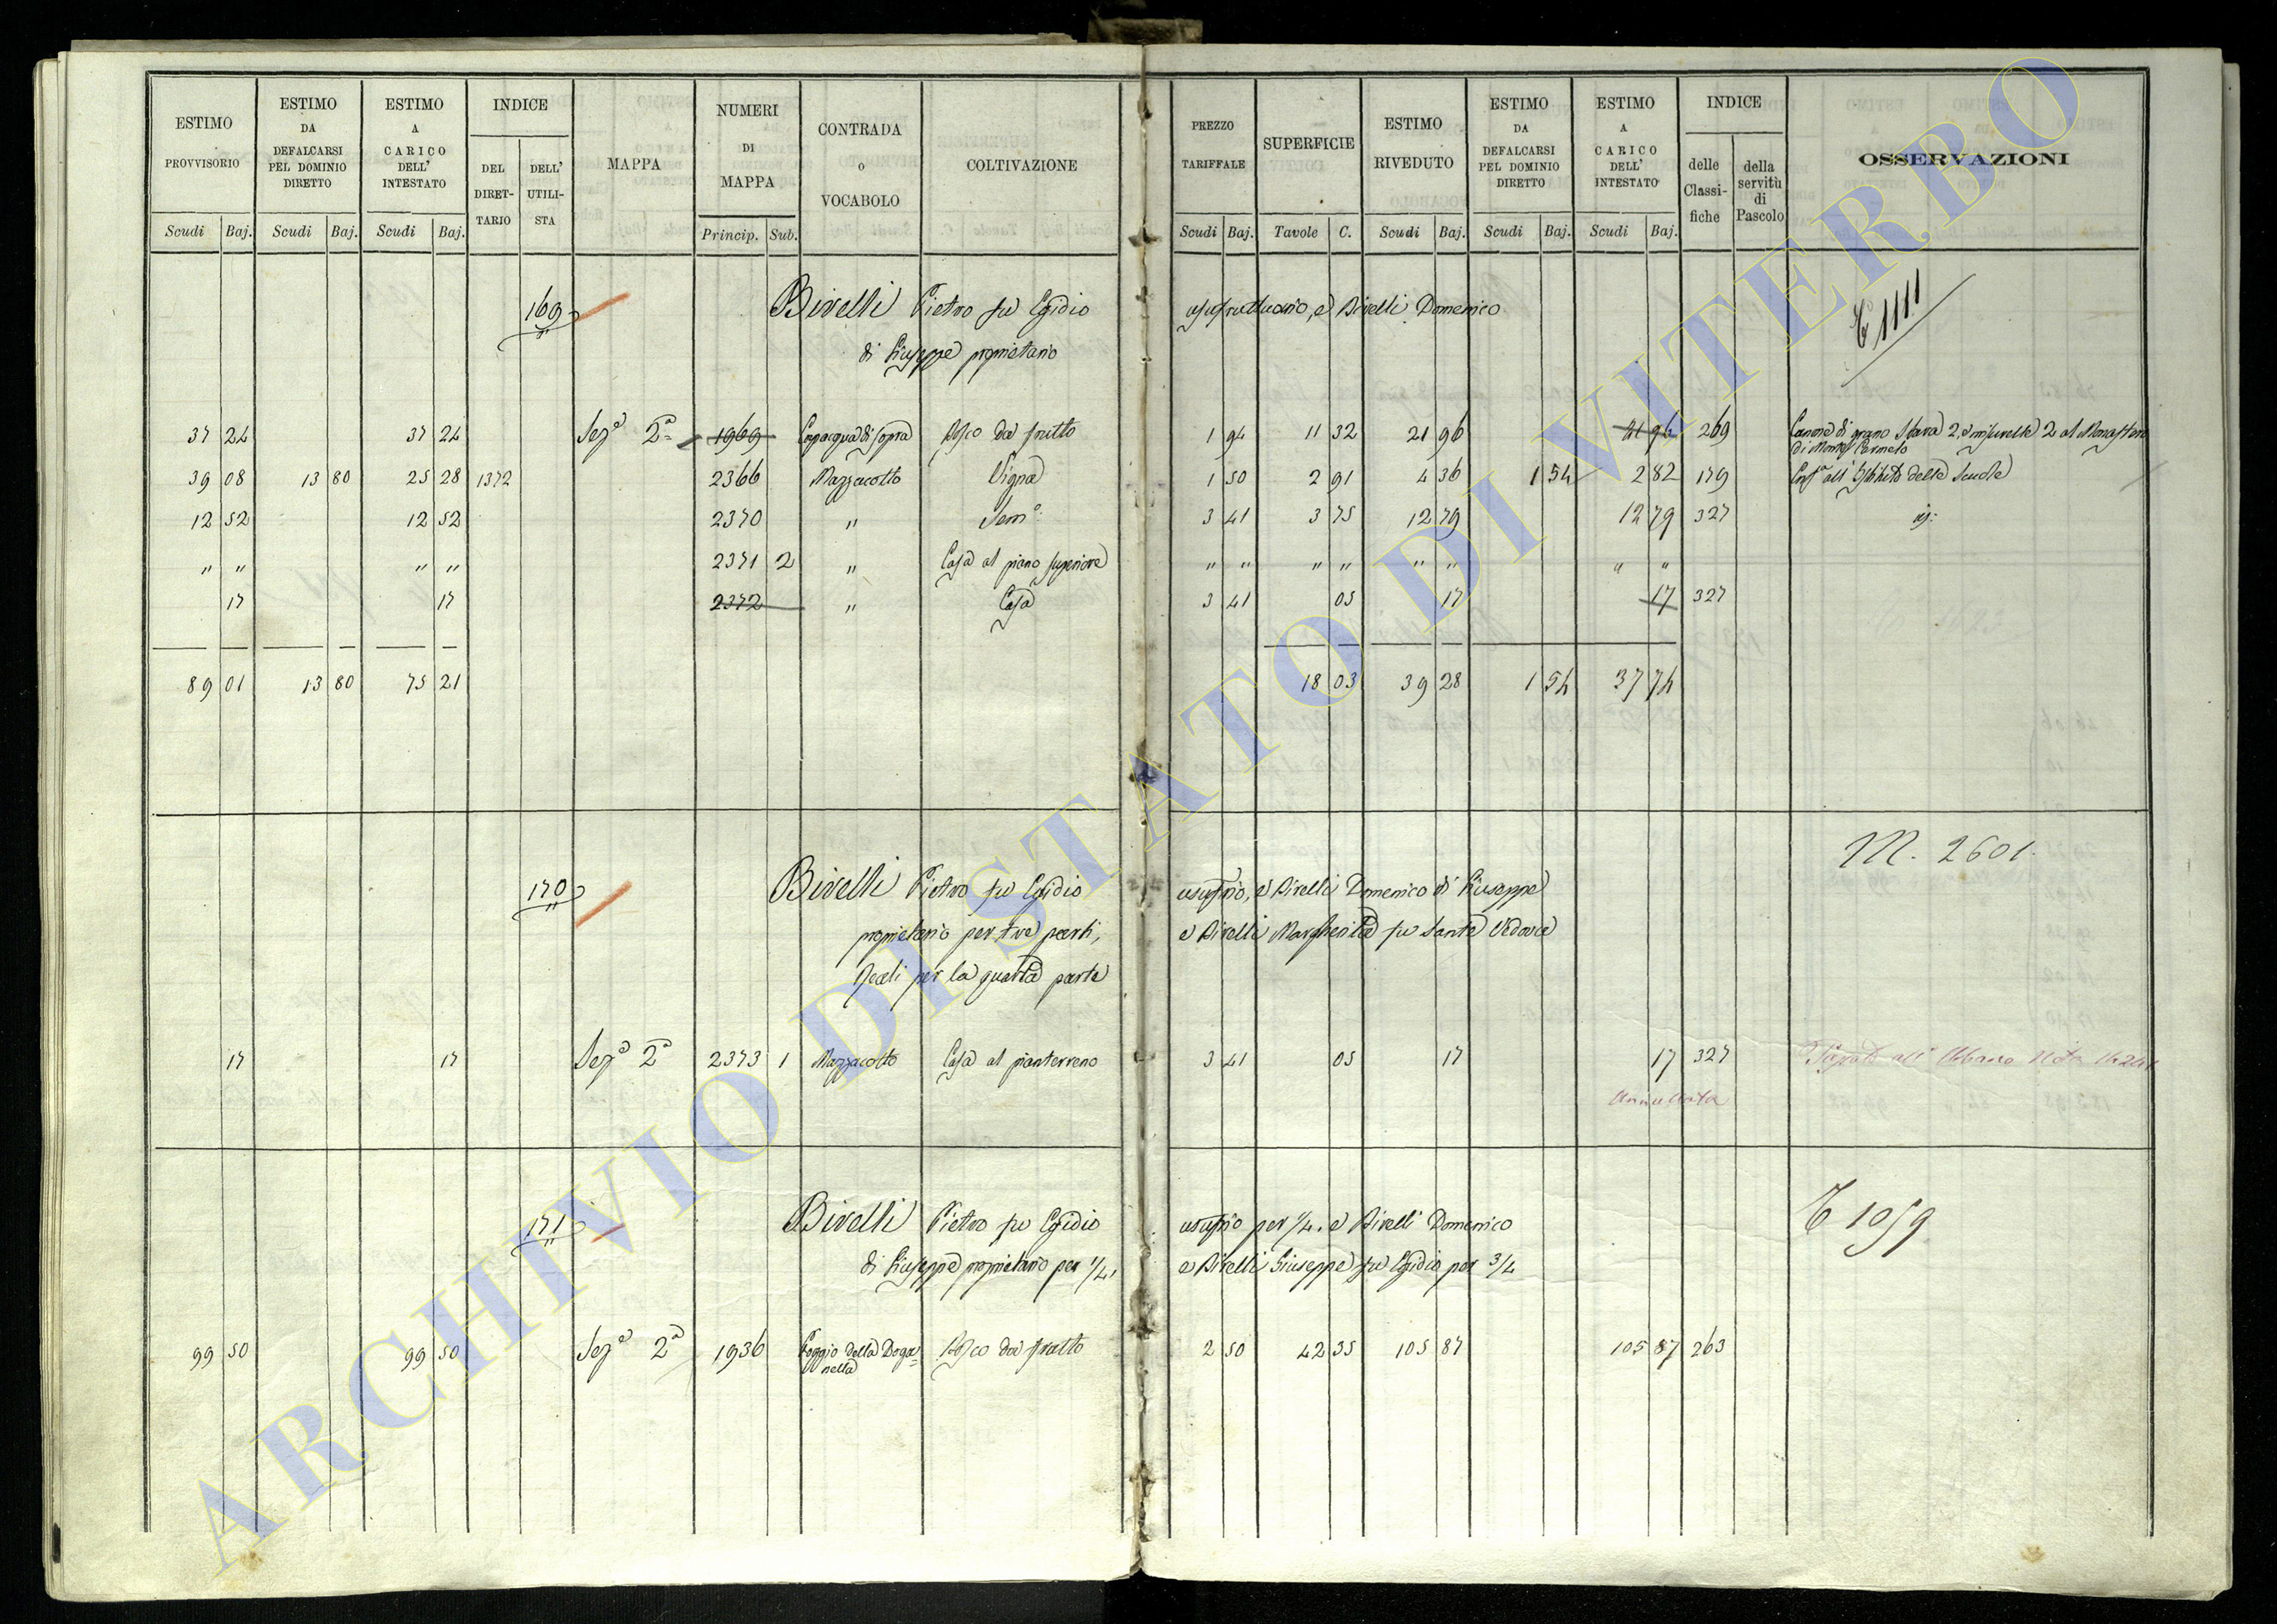 ESTIMO PROVVISORIO | ESTIMO DA DEFALCARSI PEL DOMINIO DIRETTO | ESTIMO A CARICO DELL' INTESTATO | INDICE DEL DIRETTARIO | DELL' UTILISTA | MAPPA | NUMERI DI MAPPA | CONTRADA o VOCABOLO | COLTIVAZIONE | PREZZO TARIFFALE | SUPERFICIE | ESTIMO RIVEDUTO | ESTIMO DA DEFALCARSI PEL DOMINIO DIRETTO | ESTIMO A CARICO DELL' INTESTATO | INDICE delle Classifiche | della servitù di Pascolo | OSSERVAZIONI
Scudi Baj. Scudi Baj. Scudi Baj. Princip. Sub. Scudi Baj. Tavole C. Scudi Baj. Scudi Baj. Scudi Baj.
169 Birelli Pietro fu Egidio usufruttuario, e Birelli Domenico
di Giuseppe proprietario
T 1111
37 24 37 24 Sezᵉ 2ª 1969 Coppacqua di sopra Bosco da frutto 1 94 11 32 21 96 21 96 269 Canone di grano Stara 2, e misurelle 2 al Monastero
di Monte Carmelo
39 08 13 80 25 28 1372 2366 Mazzacotto Vigna 1 50 2 91 4 36 1 54 2 82 179 Enfª all' Istituto delle Scuole
12 52 12 52 2370 " Semº 3 41 3 75 12 79 12 79 327 id:
" " " " 2371 2 " Casa al piano superiore " " " " " " " "
17 17 2372 " Casa 3 41 05 17 17 327
89 01 13 80 75 21 18 03 39 28 1 54 37 74
M. 2601.
170 Birelli Pietro fu Egidio usufrio, e Birelli Domenico di Giuseppe
proprietario per tre parti, e Birelli Margherita fu Sante Vedova
per la quarta parte
17 17 Sezᵉ 2ª 2373 1 Mazzacotto Casa al pianterreno 3 41 05 17 17 327 all' Urbano Nota
Annullata
171 Birelli Pietro fu Egidio usufrio per 1/4. e Birelli Domenico
T 1059
di Giuseppe proprietario per 1/4, e Birelli Giuseppe fu Egidio per 3/4
99 50 99 50 Sezᵉ 2ª 1936 Poggio della Doganella Bosco da frutto 2 50 42 35 105 87 105 87 263
ARCHIVIO DI STATO DI VITERBO